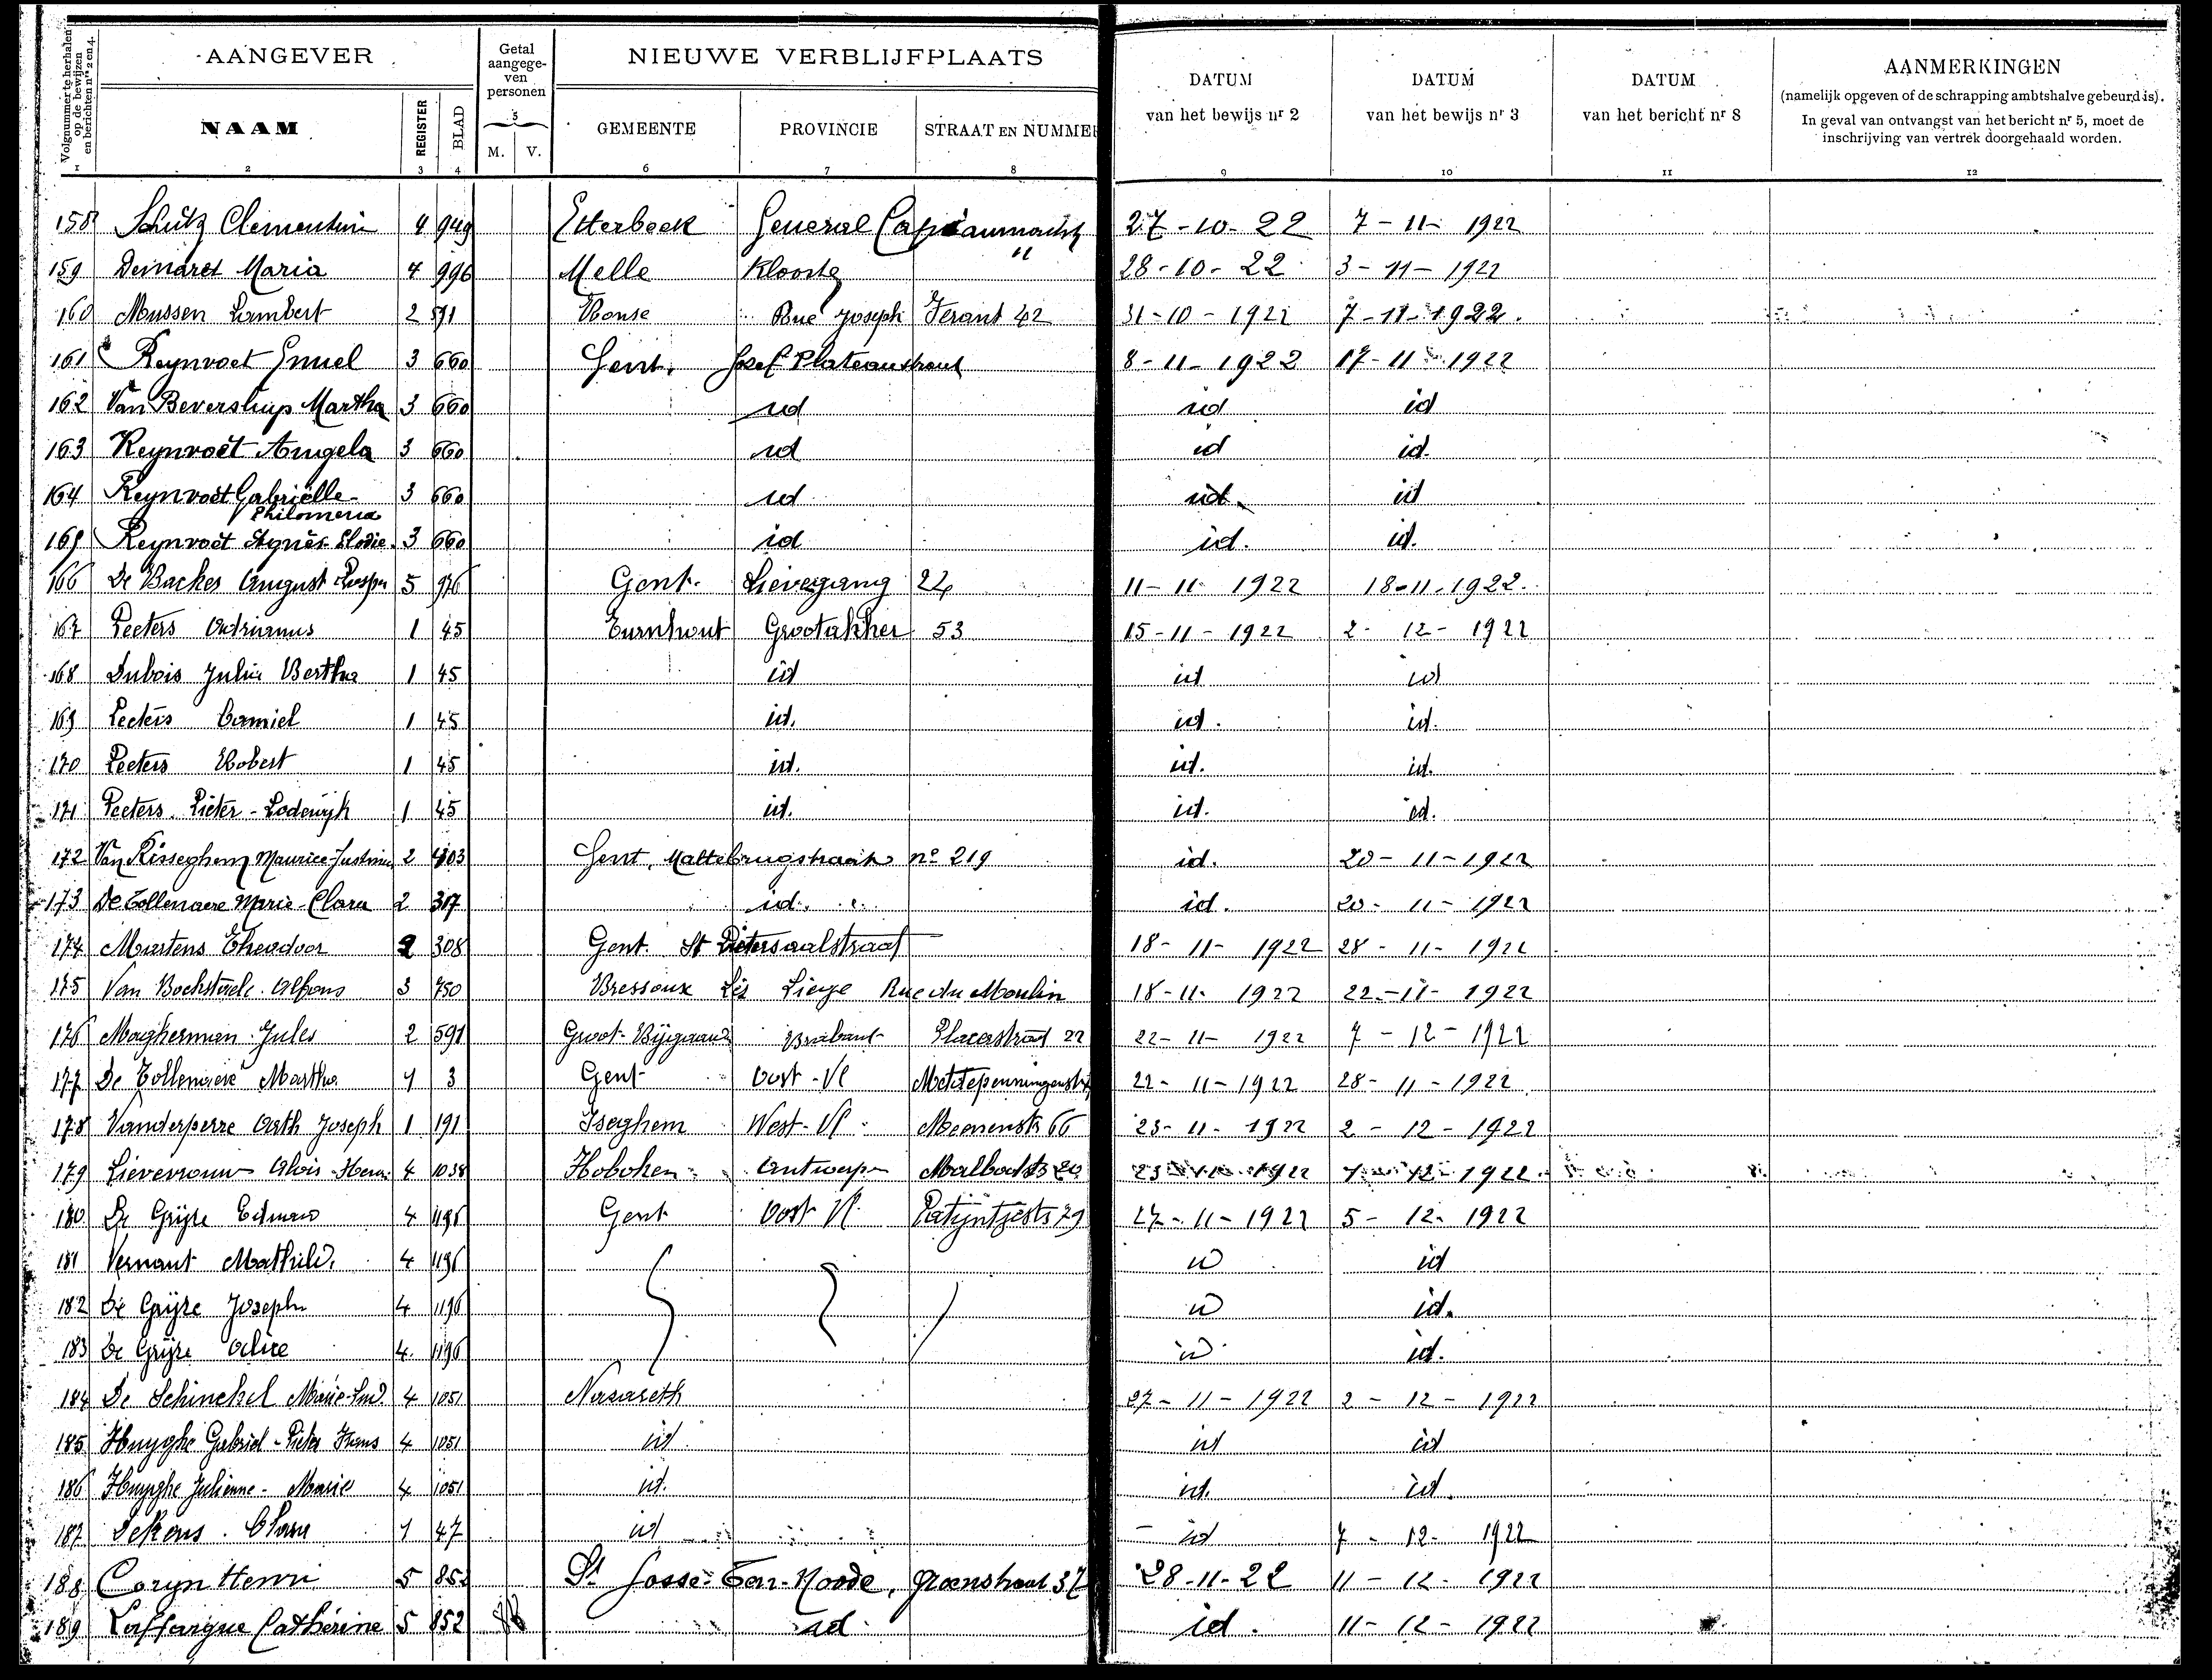 Volgnummer te herhalen op de bewijzen en berichten nrs 2 en 4.
AANGEVER
Getal aangege- ven personen
NIEUWE VERBLIJFPLAATS
DATUM van het bewijs nr 2
DATUM van het bewijs nr 3
DATUM van het bericht nr 8
AANMERKINGEN
(namelijk opgeven of de schrapping ambtshalve gebeurd is).
In geval van ontvangst van het bericht nr 5, moet de
inschrijving van vertrek doorgehaald worden.
NAAM REGISTER BLAD M. V. GEMEENTE PROVINCIE STRAAT EN NUMMER
1 2 3 4 5 6 7 8 9 10 11 12
158 Schütz Clementine 4 949 Etterbeek General 27-10-22 7-11-1922
159 Demaret Maria 4 996 Melle Klooster " 28-10-22 3-11-1922
160 Mussen Lambert 2 591 Rue Joseph 42 31-10-1922 7-11-1922.
161 Reynvoet 3 660 Gent. Josef Plateaustraat 8-11-1922 17-11-1922
162 Van Martha 3 660 id id id
163 Reynvoët Angela 3 660 id id id.
164 Reynvoët Gabriëlle- 3 660 id id. id
Philomena
165 Reynvoët Agnès-Elodie. 3 660 id id. id.
166 De Backer August 5 976 Gent. Lievegang 24 11-11-1922 18-11-1922.
167 Peeters Adrianus 1 45 Turnhout Grootakker 53 15-11-1922 2-12-1922
168 Dubois Julia Bertha 1 45 id id id
169 Peeters Camiel 1 45 id. id. id.
170 Peeters Robert 1 45 id. id. id.
171 Peeters. Pieter-Lodewijk 1 45 id. id. id.
172 Van Risseghem Maurice 2 403 Gent, Maltebrugstraat no 219 id. 20-11-1922
173 De Tollenaere Marie-Clara 2 317 id. id. 20-11-1922
174 Martens Theodoor 2 308 Gent. St Pietersaalstraat 18-11-1922 28-11-1922
175 Van Bockstaele. Alfons 3 750 Bressoux Lez Liege Rue du Moulin 18-11-1922 22-11-1922
176 Magherman Jules 2 591 Groot-Bijgaarden Brabant 22 22-11-1922 7-12-1922
177 De Tollenaere Martha 4 3 Gent Oost-Vl 22-11-1922 28-11-1922
178 Vanderperre Arth Joseph 1 191 Iseghem West-Vl Meenenstr 66 23-11-1922 2-12-1922
179 Lievevrouw Aloïs 4 1038 Hoboken Antwerpen 1922 12-1922
180 De Grijze Edmond 4 1196 Gent Oost-Vl. Patijntjestr 79 27-11-1922 5-12-1922
181 Vernaut Mathild. 4 1196 id id
182 De Grijze Joseph 4 1196 id id.
183 De Grijze Alice 4 1196 id id.
184 De Schinckel Marie-Lud. 4 1051 Nazareth 27-11-1922 2-12-1922
185 Huyghe Gabriel-Pieter Frans 4 1051 id id id
186 Huyghe Julienne-Marie 4 1051 id. id. id.
187 Clara 4 47 id id 7-12-1922
188 Coryn Henri 5 852 St Josse-Ten-Noode, Groenstraat 37 28-11-22 11-12-1922
189 Laffargue Cathérine 5 852 id id. 11-12-1922